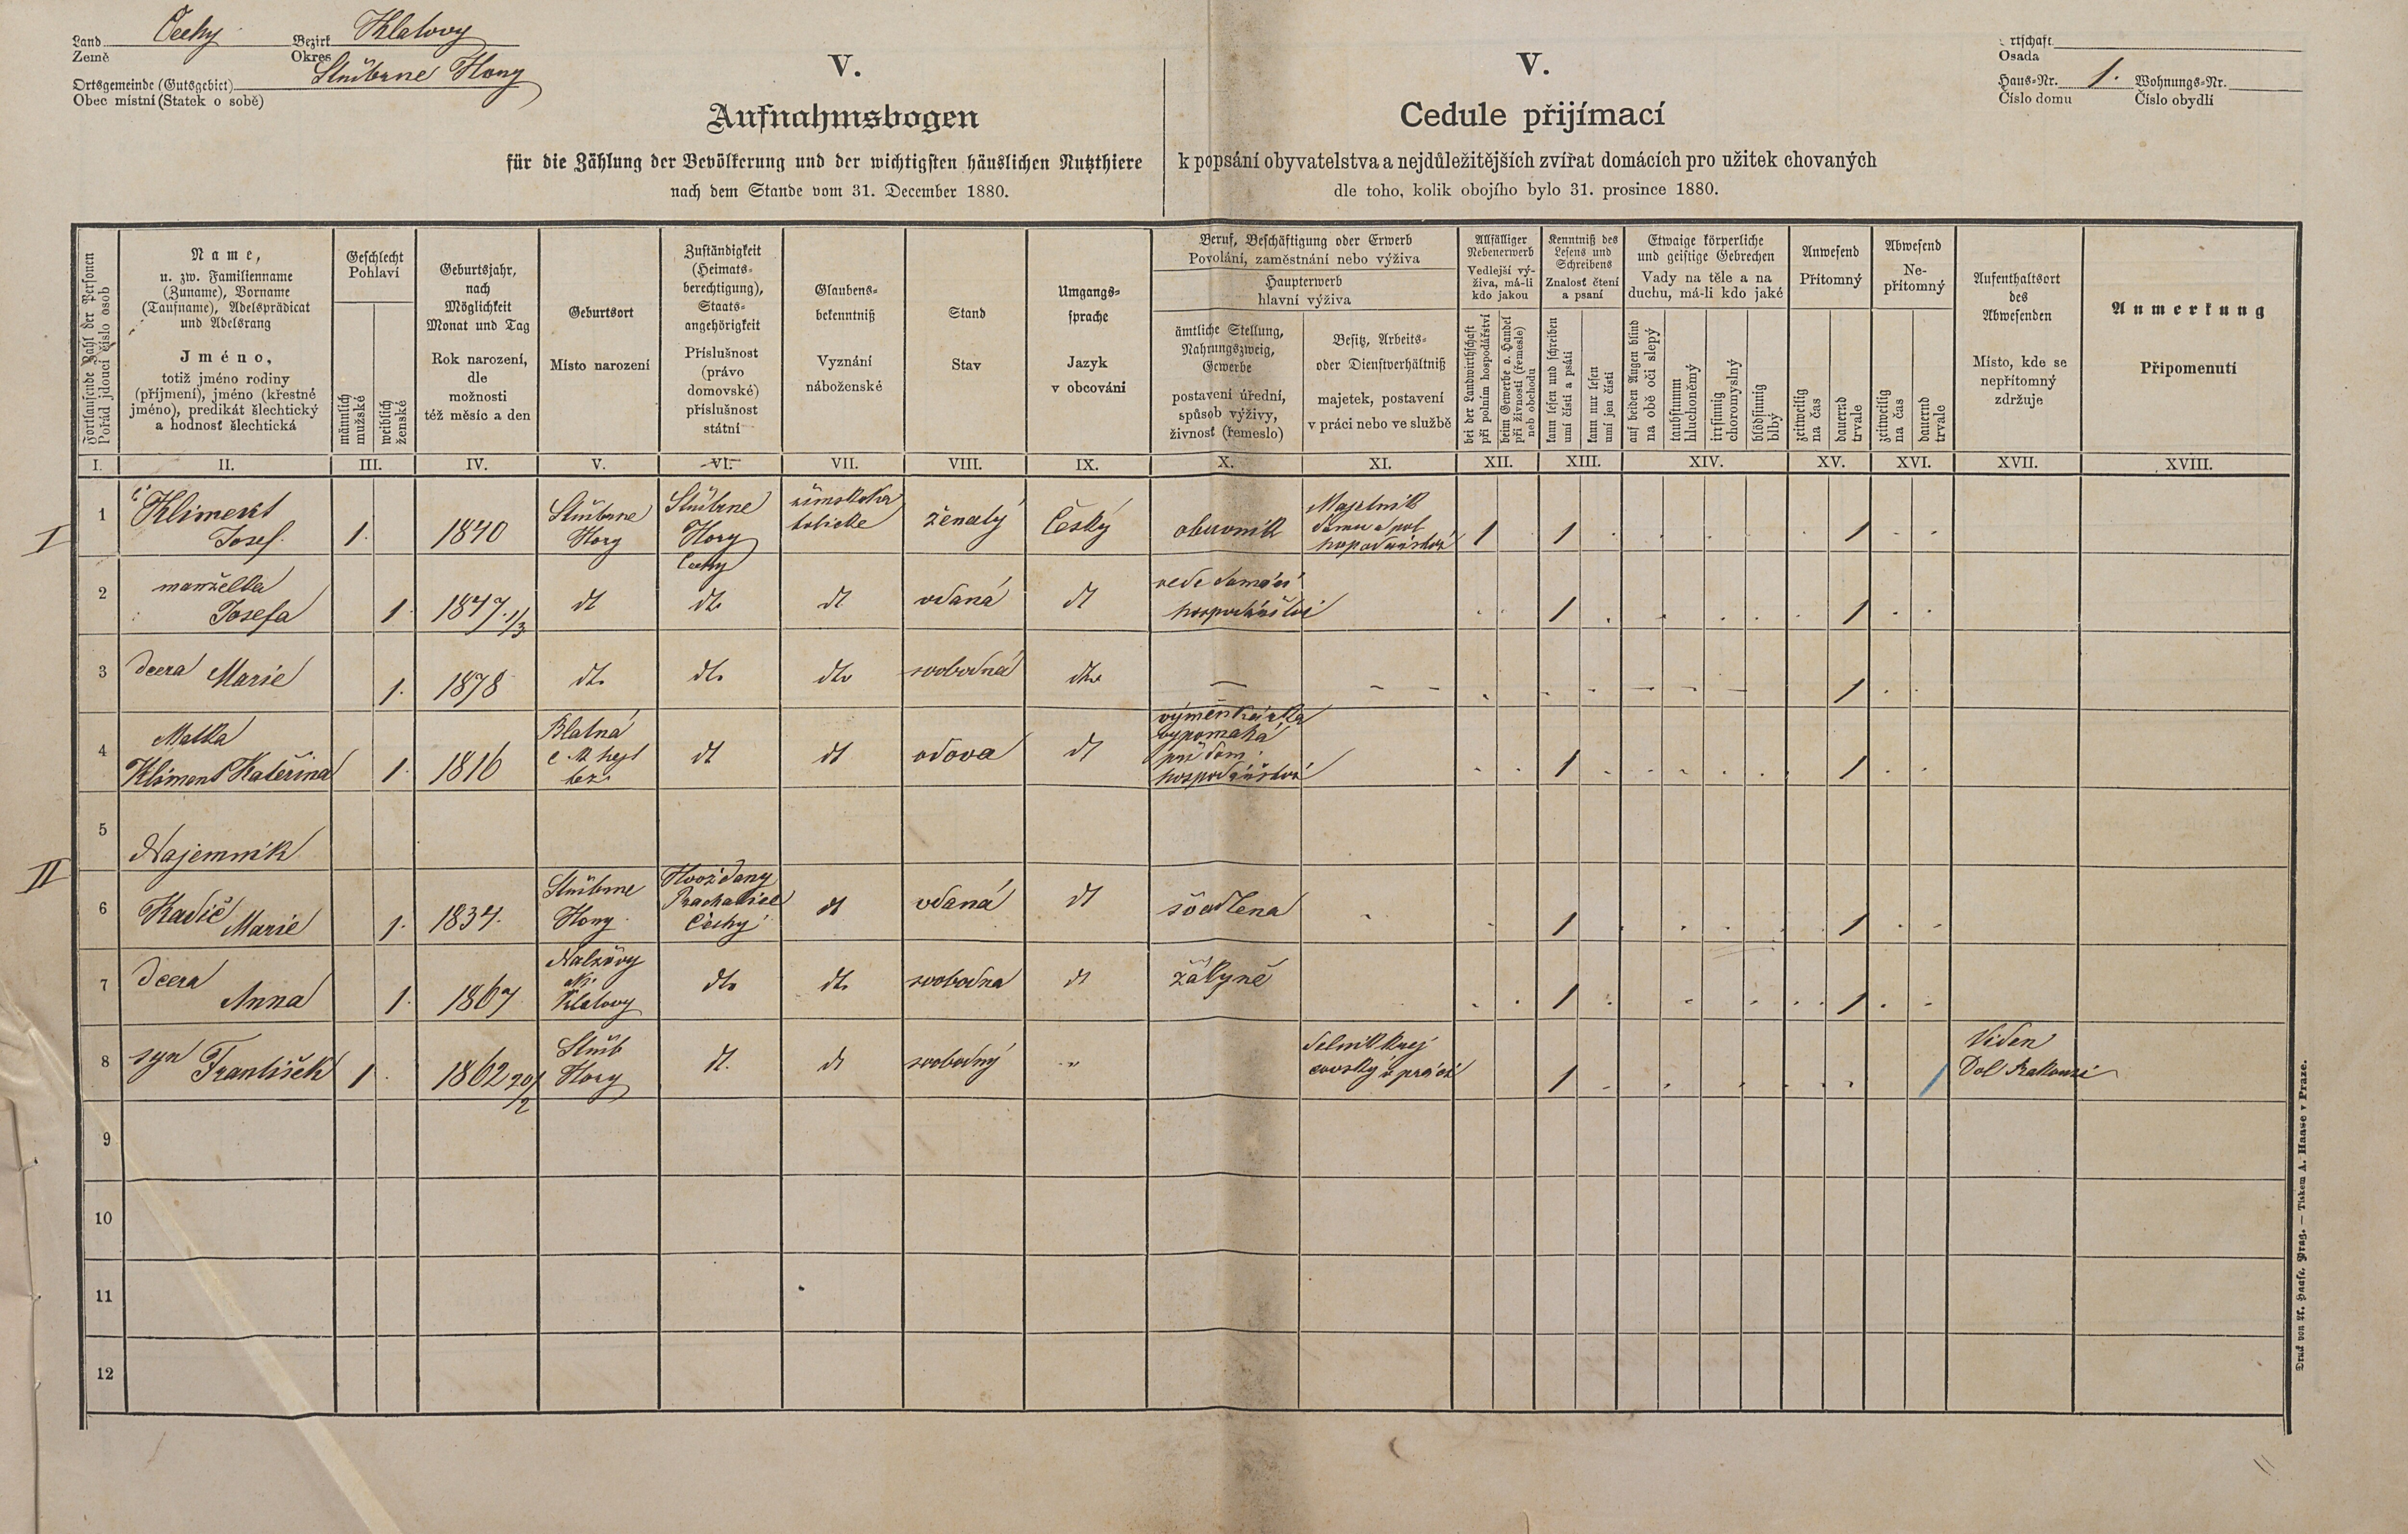 Land Čechy Bezirk Klatovy
Země Okres
Ortsgemeinde (Gutsgebiet) Stříbrne Hory
Obec místní (Statek o sobě)
V.
Aufnahmsbogen
für die Zählung der Bevölkerung und der wichtigsten häuslichen Nutzthiere
nach dem Stande vom 31. December 1880.
V.
Cedule přijímací
k popsání obyvatelstva a nejdůležitějších zvířat domácích pro užitek chovaných
dle toho, kolik obojího bylo 31. prosince 1880.
rtschaft
Osada
Haus-Nr. 1. Wohnungs-Nr.
Číslo domu Číslo obydlí
Fortlaufende Zahl der Personen
Pořád jdoucí číslo osob
Name,
u. zw. Familienname
(Zuname), Vorname
(Taufname), Adelsprädicat
und Adelsrang
Jméno,
totiž jméno rodiny
(příjmení), jméno (křestné
jméno), predikát šlechtický
a hodnosť šlechtická
Geschlecht
Pohlaví
männlich
mužské
weiblich
ženské
Geburtsjahr,
nach
Möglichkeit
Monat und Tag
Rok narození,
dle
možnosti
též měsíc a den
Geburtsort
Místo narození
Zuständigkeit
(Heimats-
berechtigung),
Staats-
angehörigkeit
Příslušnost
(právo
domovské)
příslušnost
státní
Glaubens-
bekenntniß
Vyznání
náboženské
Stand
Stav
Umgangs-
sprache
Jazyk
v obcování
Beruf, Beschäftigung oder Erwerb
Povolání, zaměstnání nebo výživa
Haupterwerb
hlavní výživa
ämtliche Stellung,
Nahrungszweig,
Gewerbe
postavení úřední,
spůsob výživy,
živnosť (řemeslo)
Besitz, Arbeits-
oder Dienstverhältniß
majetek, postavení
v práci nebo ve službě
Allfälliger
Nebenerwerb
Vedlejší vý-
živa, má-li
kdo jakou
bei der Landwirthschaft
při polním hospodářství
beim Gewerbe o. Handel
při živnosti (řemesle)
neb obchodu
Kenntniß des
Lesens und
Schreibens
Znalosť čtení
a psaní
kann lesen und schreiben
umí čísti a psáti
kann nur lesen
umí jen čísti
Etwaige körperliche
und geistige Gebrechen
Vady na těle a na
duchu, má-li kdo jaké
auf beiden Augen blind
na obě oči slepý
taubstumm
hluchoněmý
irrsinnig
choromyslný
blödsinnig
blbý
Anwesend
Přítomný
zeitweilig
na čas
dauernd
trvale
Abwesend
Ne-
přítomný
zeitweilig
na čas
dauernd
trvale
Aufenthaltsort
des
Abwesenden
Místo, kde se
nepřítomný
zdržuje
Anmerkung
Připomenutí
I. II. III. IV. V. VI. VII. VIII. IX. X. XI. XII. XIII. XIV. XV. XVI. XVII. XVIII.
I
1 Kliment
Josef 1. 1840 Stříbrne
Hory Stříbrne
Hory
Čechy římskoka
tolicke ženatý Český obuvník Majetník
domu a pol
hospodářství 1 1 1
2 manželka
Josefa 1. 1847. 1/3 dt dto dt vdaná dt vede domácí
hospodářství 1 1
3 Dcera Marie 1. 1878 dto dto dto svobodná dto 1
4 Matka
Kliment Kateřina 1. 1816 Blatná dt dt vdova dt výměnkářka
vypomahá
při dom.
hospodářství 1 1
5 Najemník
II
6 Kadič Marie 1. 1834. Stříbrne
Hory Hvožďany
Prachatice
Čechy dt vdaná dt švadlena 1 1
7 Dcera
Anna 1. 1867 Nalžovy
Klatovy dto dto svobodna dt žákyně 1 1
8 syn František 1 1862 20/2 Stříb
Hory dt. dt svobodný „ dělník krej
čovský v práci 1 1 Víden
Dol Rakousi
9
10
11
12
Druck von A. Haase, Prag. — Tiskem A. Haase v Praze.